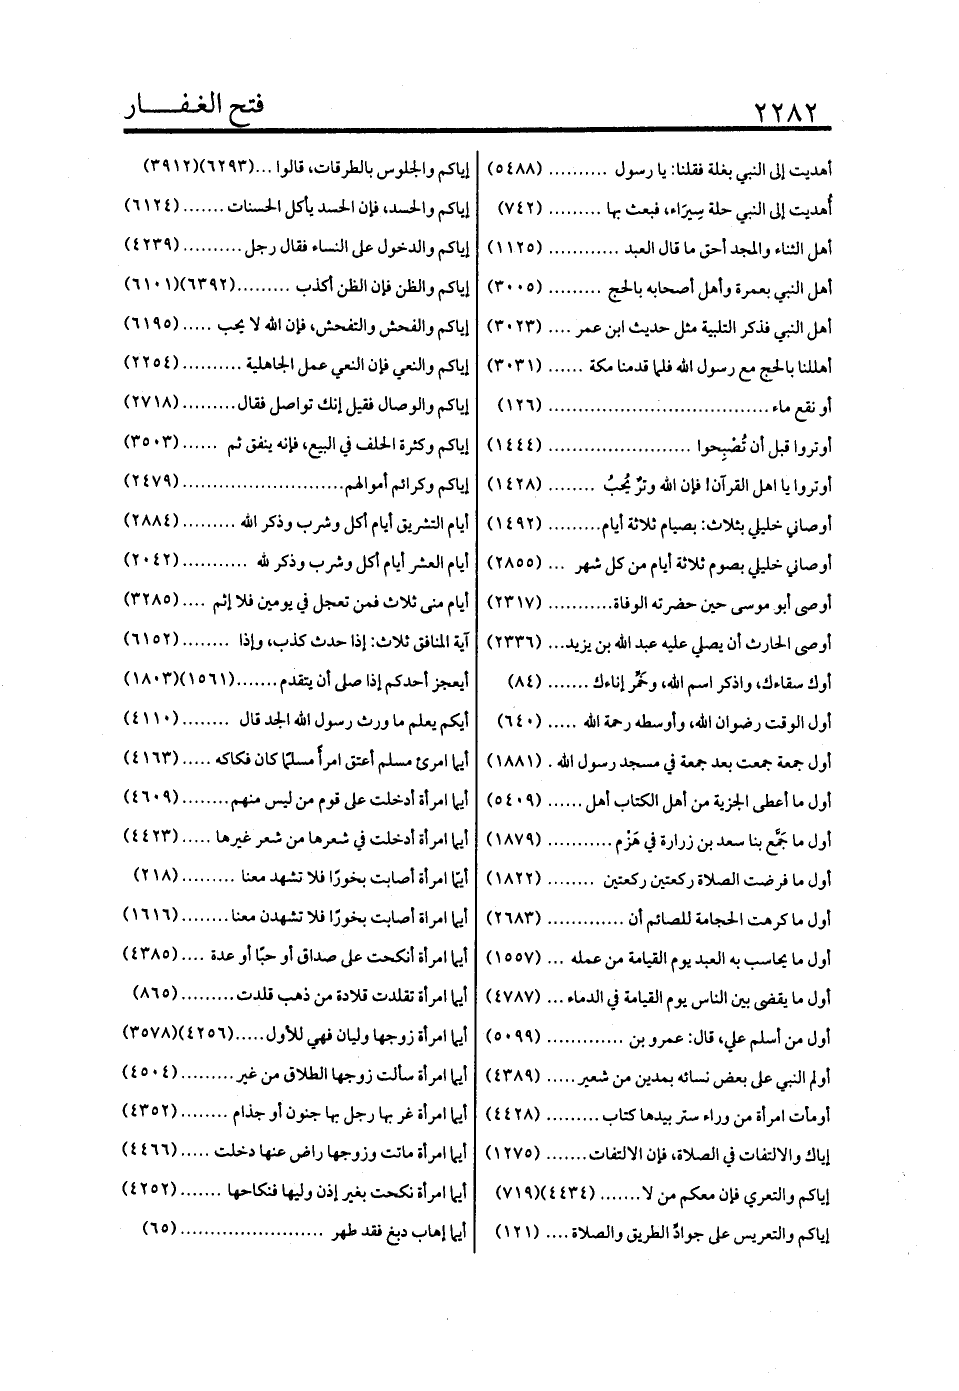 ٢٢٨٢
فتح الغفـــــار
أهديت إلى النبي بغلة فقلنا: يا رسول .......... (٥٤٨٨)
أُهديت إلى النبي حلة سِيَرَاء، فبعث بها ......... (٧٤٢)
أهل الثناء والمجد أحق ما قال العبد ............ (١١٢٥)
أهل النبي بعمرة وأهل أصحابه بالحج ......... (٣٠٠٥)
أهل النبي فذكر التلبية مثل حديث ابن عمر .... (٣٠٢٣)
أهللنا بالحج مع رسول الله فلما قدمنا مكة ...... (٣٠٣١)
أو نقع ماء ..................................... (١٢٦)
أوتروا قبل أن تُصْبِحوا ........................ (١٤٤٤)
أوتروا يا اهل القرآن! فإن الله وترٌ يُحبُ ........ (١٤٢٨)
أوصاني خليلي بثلاث: بصيام ثلاثة أيام......... (١٤٩٢)
أوصاني خليلي بصوم ثلاثة أيام من كل شهر ... (٢٨٥٥)
أوصى أبو موسى حين حضرته الوفاة........... (٢٣١٧)
أوصى الحارث أن يصلي عليه عبد الله بن يزيد... (٢٣٣٦)
أوك سقاءك، واذكر اسم الله، وخَمِّر إناءك ....... (٨٤)
أول الوقت رضوان الله، وأوسطه رحمة الله ..... (٦٤٠)
أول جمعة جمعت بعد جمعة في مسجد رسول الله . (١٨٨١)
أول ما أعطى الجزية من أهل الكتاب أهل...... (٥٤٠٩)
أول ما جَمَّع بنا سعد بن زرارة في هَزْم ........... (١٨٧٩)
أول ما فرضت الصلاة ركعتين ركعتين ........ (١٨٢٢)
أول ما كرهت الحجامة للصائم أن ............. (٢٦٨٣)
أول ما يحاسب به العبد يوم القيامة من عمله ... (١٥٥٧)
أول ما يقضى بين الناس يوم القيامة في الدماء ... (٤٧٨٧)
أول من أسلم علي، قال: عمرو بن ............. (٥٠٩٩)
أولم النبي على بعض نسائه بمدين من شعير..... (٤٣٨٩)
أومأت امرأة من وراء ستر بيدها كتاب ......... (٤٤٢٨)
إياك والالتفات في الصلاة، فإن الالتفات....... (١٢٧٥)
إياكم والتعري فإن معكم من لا....... (٤٤٣٤)(٧١٩)
إياكم والتعريس على جوادِّ الطريق والصلاة .... (١٢١)
إياكم والجلوس بالطرقات، قالوا ...(٦٢٩٣)(٣٩١٢)
إياكم والحسد، فإن الحسد يأكل الحسنات ....... (٦١٢٤)
إياكم والدخول على النساء فقال رجل .......... (٤٢٣٩)
إياكم والظن فإن الظن أكذب .........(٦٣٩٢)(٦١٠١)
إياكم والفحش والتفحش، فإن الله لا يحب ..... (٦١٩٥)
إياكم والنعي فإن النعي عمل الجاهلية .......... (٢٢٥٤)
إياكم والوصال فقيل إنك تواصل فقال......... (٢٧١٨)
إياكم وكثرة الحلف في البيع، فإنه ينفق ثم ...... (٣٥٠٣)
إياكم وكرائم أموالهم........................... (٢٤٧٩)
أيام التشريق أيام أكل وشرب وذكر الله ......... (٢٨٨٤)
أيام العشر أيام أكل وشرب وذكر لله ........... (٢٠٤٢)
أيام منى ثلاث فمن تعجل في يومين فلا إثم .... (٣٢٨٥)
آية المنافق ثلاث: إذا حدث كذب، وإذا ........ (٦١٥٢)
أيعجز أحدكم إذا صلى أن يتقدم.......(١٥٦١)(١٨٠٣)
أيكم يعلم ما ورث رسول الله الجد قال ........ (٤١١٠)
أيما امرئ مسلم أعتق امرأً مسلمًا كان فكاكه ..... (٤١٦٣)
أيما امرأة أدخلت على قوم من ليس منهم........ (٤٦٠٩)
أيما امرأة أدخلت في شعرها من شعر غيرها ..... (٤٤٢٣)
أيّما امرأة أصابت بخورًا فلا تشهد معنا ......... (٢١٨)
أيما امراة أصابت بخورًا فلا تشهدن معنا........ (١٦١٦)
أيما امرأة أنكحت على صداق أو حبًا أو عدة .... (٤٣٨٥)
أيما امرأة تقلدت قلادة من ذهب قلدت ......... (٨٦٥)
أيما امرأة زوجها وليان فهي للأول.....(٤٢٥٦)(٣٥٧٨)
أيما امرأة سألت زوجها الطلاق من غير......... (٤٥٠٤)
أيما امرأة غر بها رجل بها جنون أو جذام ........ (٤٣٥٢)
أيما امرأة ماتت وزوجها راض عنها دخلت ..... (٤٤٦٦)
أيما امرأة نكحت بغير إذن وليها فنكاحها ....... (٤٢٥٢)
أيما إهاب دبغ فقد طهر ........................ (٦٥)